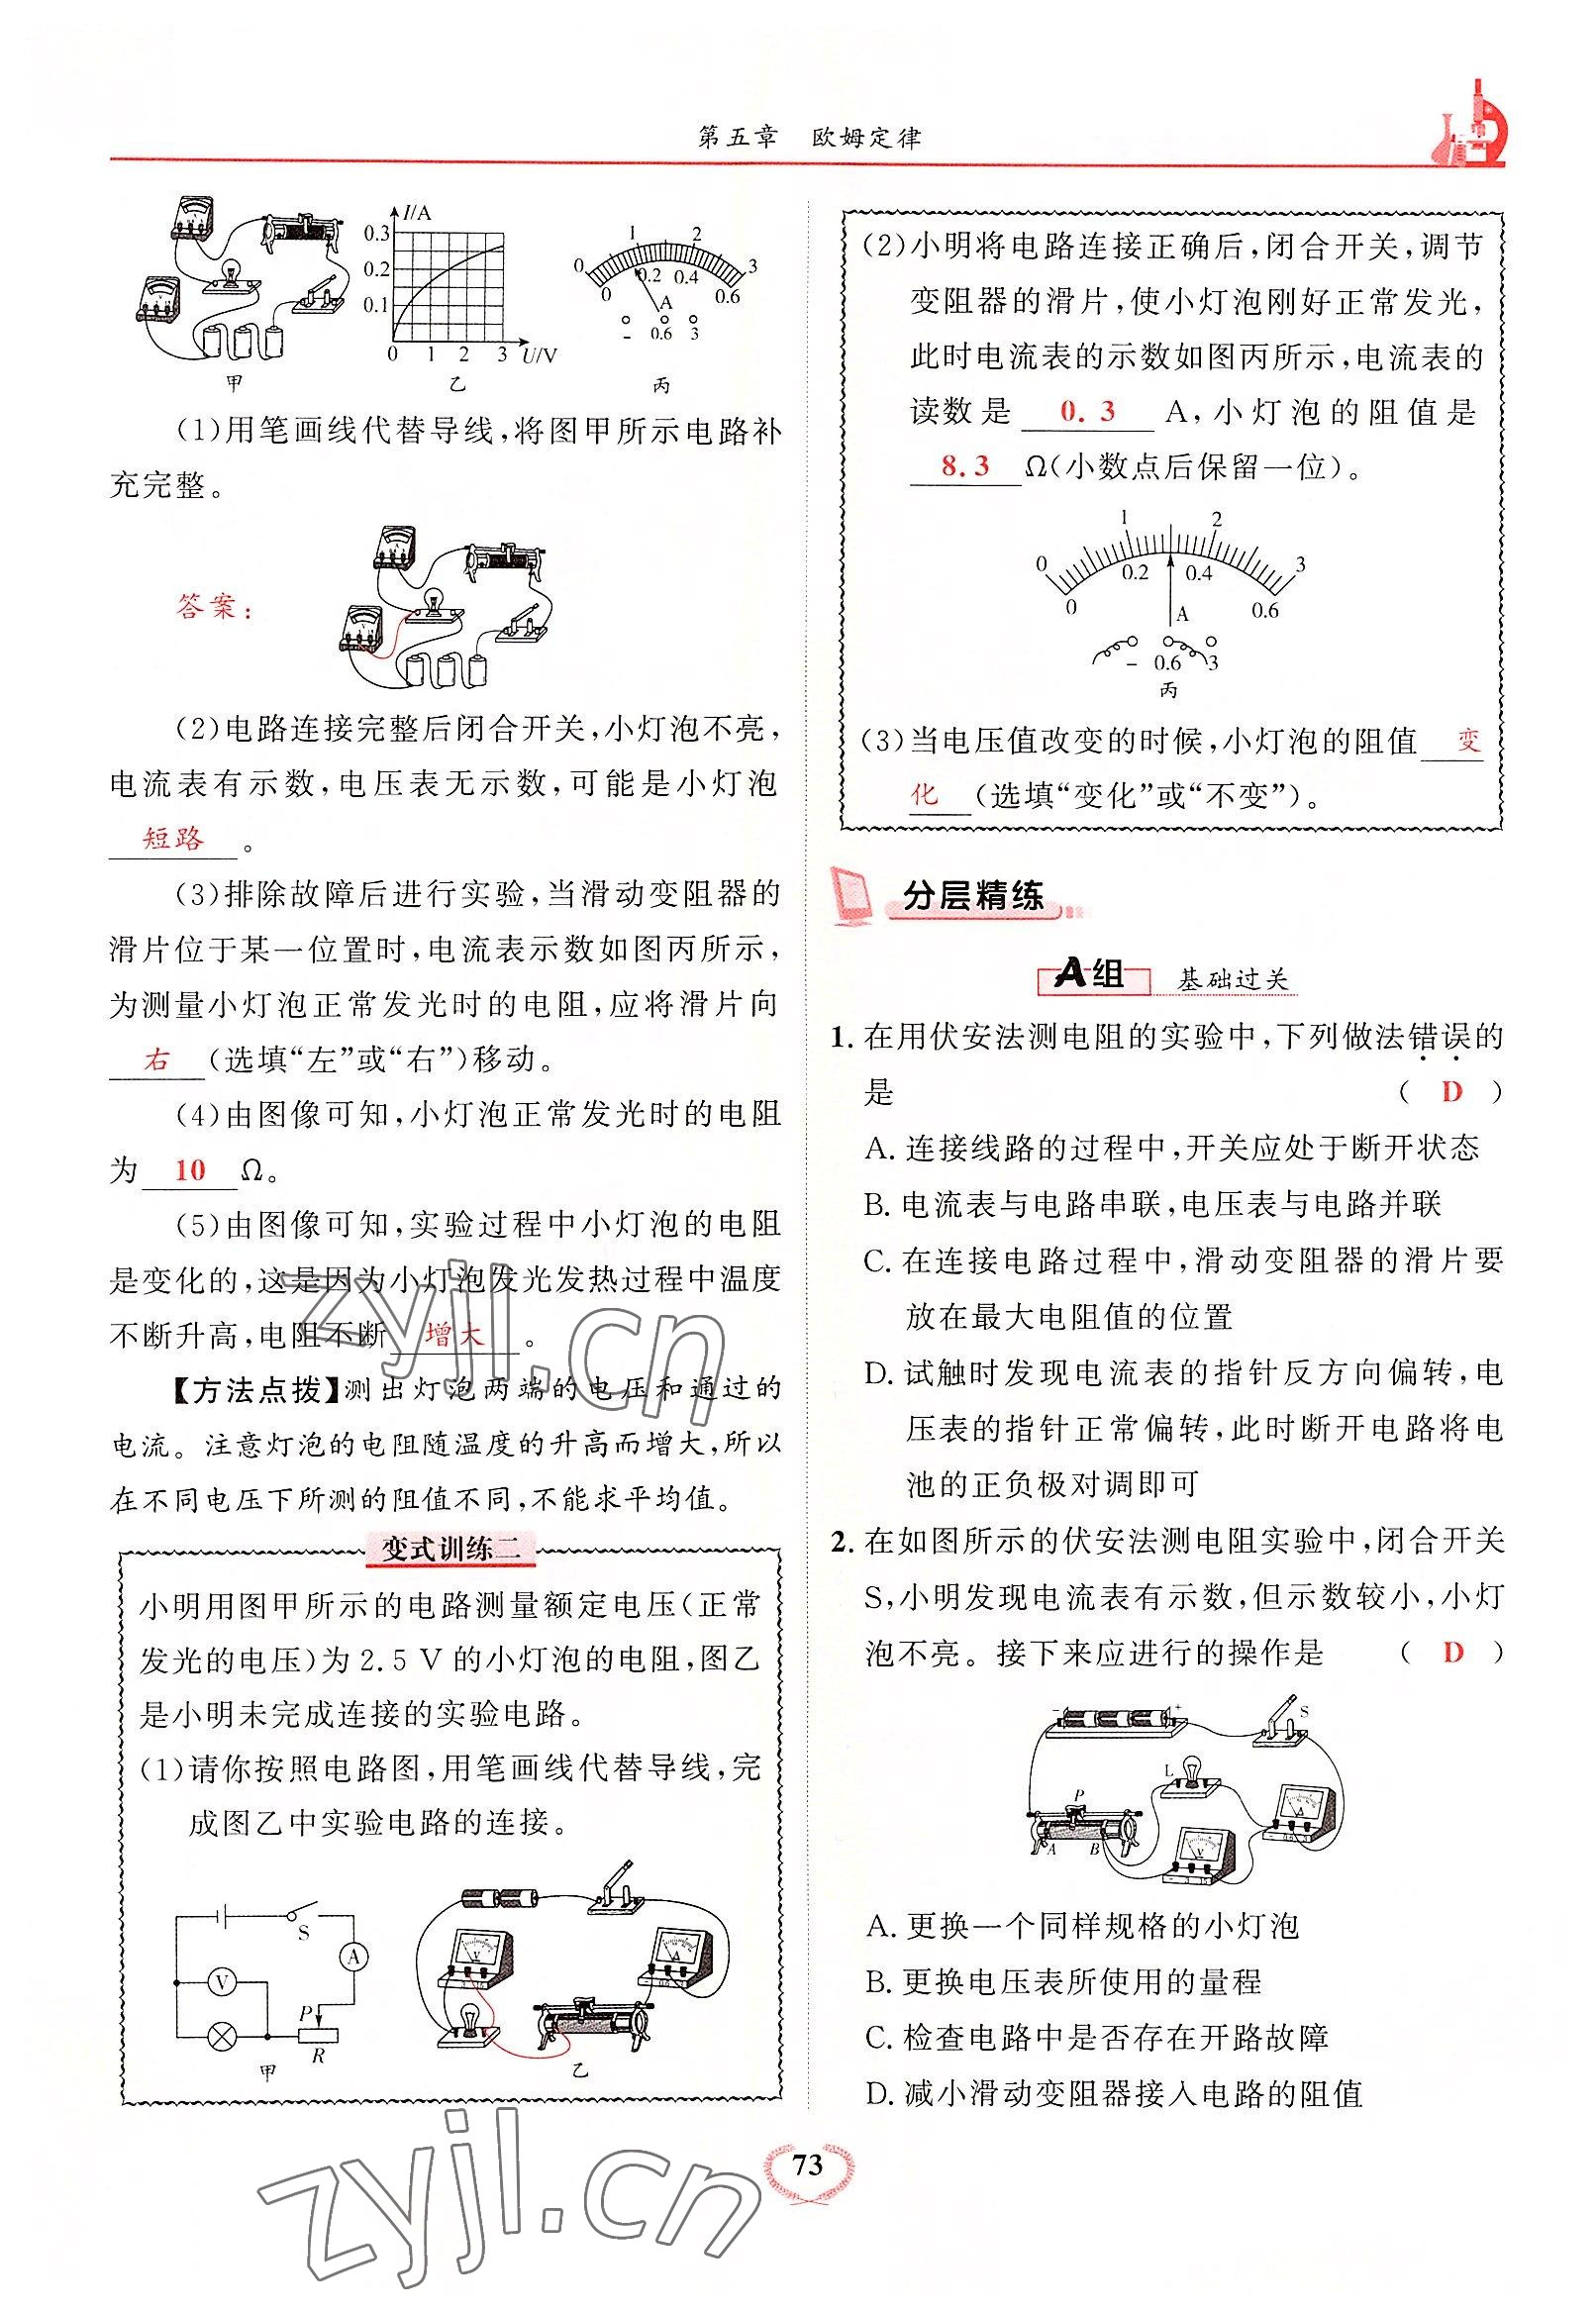 第五章 欧姆定律
I/A
0.3
0.2
0.1
0 1 2 3 U/V
0 1 2 3
0 0.2 0.4 0.6
A
- 0.6 3
甲 乙 丙
(1)用笔画线代替导线,将图甲所示电路补
充完整。
答案:
(2)电路连接完整后闭合开关,小灯泡不亮,
电流表有示数,电压表无示数,可能是小灯泡
短路。
(3)排除故障后进行实验,当滑动变阻器的
滑片位于某一位置时,电流表示数如图丙所示,
为测量小灯泡正常发光时的电阻,应将滑片向
右(选填“左”或“右”)移动。
(4)由图像可知,小灯泡正常发光时的电阻
为 10 Ω。
(5)由图像可知,实验过程中小灯泡的电阻
是变化的,这是因为小灯泡发光发热过程中温度
不断升高,电阻不断 增大 。
【方法点拨】测出灯泡两端的电压和通过的
电流。注意灯泡的电阻随温度的升高而增大,所以
在不同电压下所测的阻值不同,不能求平均值。
变式训练二
小明用图甲所示的电路测量额定电压(正常
发光的电压)为2.5 V的小灯泡的电阻,图乙
是小明未完成连接的实验电路。
(1)请你按照电路图,用笔画线代替导线,完
成图乙中实验电路的连接。
S
A
V
P
R
甲
V A
乙
(2)小明将电路连接正确后,闭合开关,调节
变阻器的滑片,使小灯泡刚好正常发光,
此时电流表的示数如图丙所示,电流表的
读数是 0.3 A,小灯泡的阻值是
8.3 Ω(小数点后保留一位)。
0 1 2 3
0 0.2 0.4 0.6
A
- 0.6 3
丙
(3)当电压值改变的时候,小灯泡的阻值 变
化 (选填“变化”或“不变”)。
分层精练
A组 基础过关
1. 在用伏安法测电阻的实验中,下列做法错误的
是 ( D )
A. 连接线路的过程中,开关应处于断开状态
B. 电流表与电路串联,电压表与电路并联
C. 在连接电路过程中,滑动变阻器的滑片要
放在最大电阻值的位置
D. 试触时发现电流表的指针反方向偏转,电
压表的指针正常偏转,此时断开电路将电
池的正负极对调即可
2. 在如图所示的伏安法测电阻实验中,闭合开关
S,小明发现电流表有示数,但示数较小,小灯
泡不亮。接下来应进行的操作是 ( D )
- + S
L
P
A B
V
A
A. 更换一个同样规格的小灯泡
B. 更换电压表所使用的量程
C. 检查电路中是否存在开路故障
D. 减小滑动变阻器接入电路的阻值
73
zyjl.cn
zyjl.cn